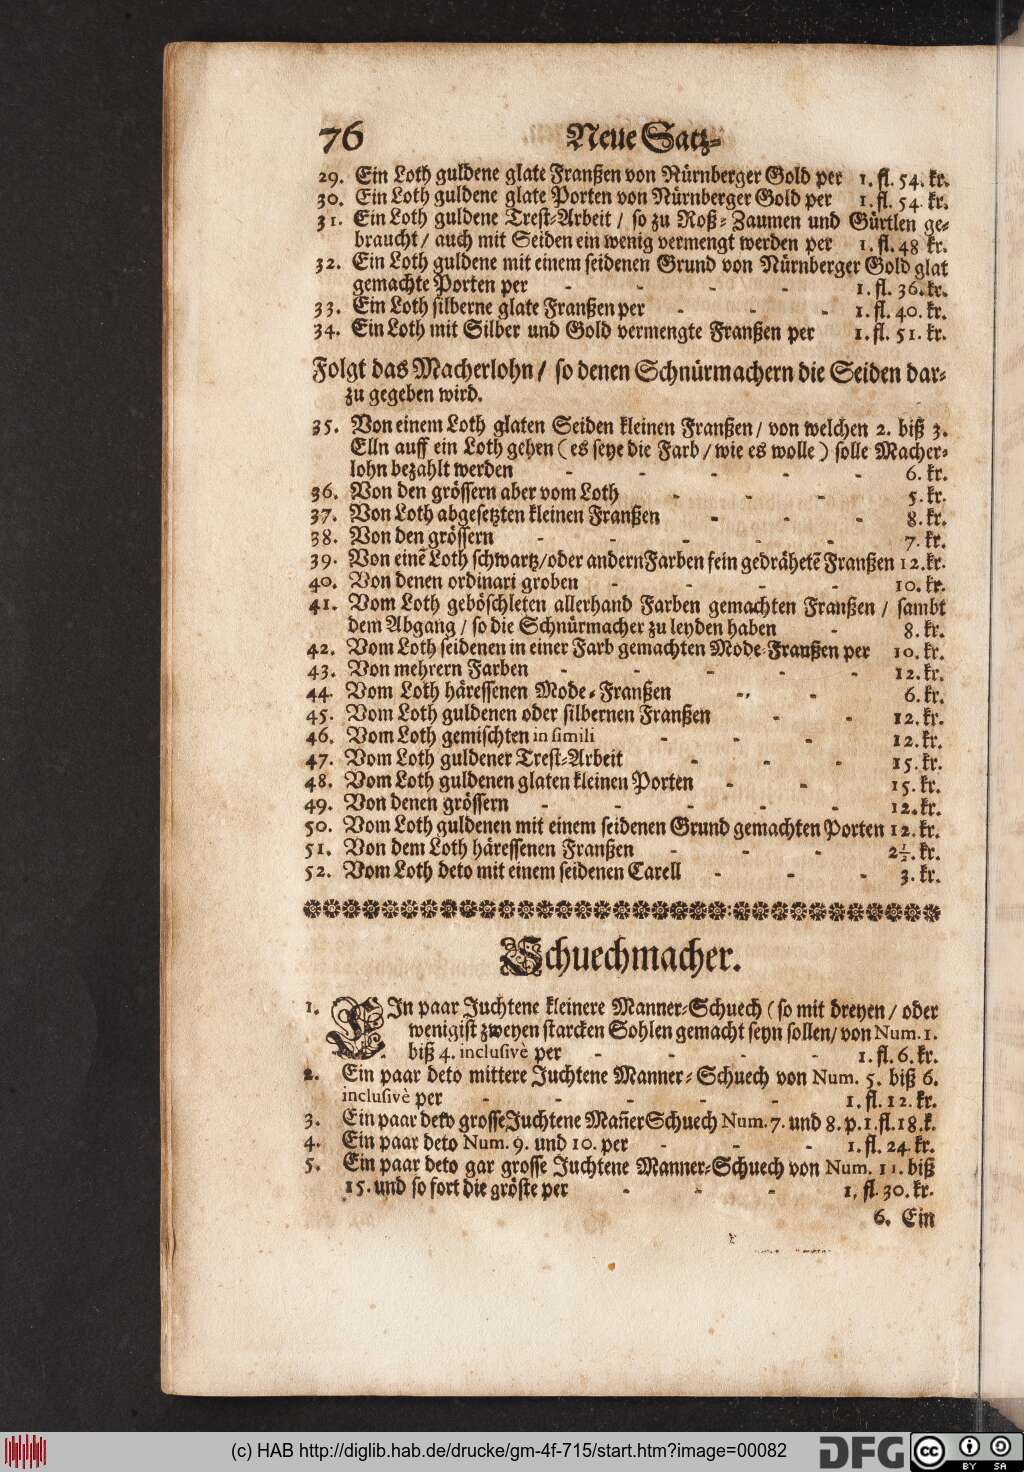 76 Neue Satz-
29. Ein Loth guldene glate Franßen von Nürnberger Gold per 1. fl. 54. kr.
30. Ein Loth guldene glate Porten von Nürnberger Gold per 1. fl. 54. kr.
31. Ein Loth guldene Trest-Arbeit / so zu Roß-Zaumen und Gürtlen ge-
braucht / auch mit Seiden ein wenig vermengt werden per 1. fl. 48 kr.
32. Ein Loth guldene mit einem seidenen Grund von Nürnberger Gold glat
gemachte Porten per - - - - 1. fl. 36. kr.
33. Ein Loth silberne glate Franßen per - - - 1. fl. 40. kr.
34. Ein Loth mit Silber und Gold vermengte Franßen per 1. fl. 51. kr.
Folgt das Macherlohn / so denen Schnürmachern die Seiden dar-
zu gegeben wird.
35. Von einem Loth glaten Seiden kleinen Franßen / von welchen 2. biß 3.
Elln auff ein Loth gehen (es seye die Farb / wie es wolle) solle Macher-
lohn bezahlt werden - - - - - 6. kr.
36. Von den grössern aber vom Loth - - - 5. kr.
37. Von Loth abgesetzten kleinen Franßen - - - 8. kr.
38. Von den grössern - - - - - 7. kr.
39. Von einẽ Loth schwartz/oder andern Farben fein gedrähetẽ Franßen 12. kr.
40. Von denen ordinari groben - - - - 10. kr.
41. Vom Loth geböschleten allerhand Farben gemachten Franßen / sambt
dem Abgang / so die Schnürmacher zu leyden haben - 8. kr.
42. Vom Loth seidenen in einer Farb gemachten Mode-Franßen per 10. kr.
43. Von mehrern Farben - - - - - 12. kr.
44. Vom Loth häressenen Mode-Franßen - - 6. kr.
45. Vom Loth guldenen oder silbernen Franßen - - 12. kr.
46. Vom Loth gemischten in simili - - - 12. kr.
47. Vom Loth guldener Trest-Arbeit - - - 15. kr.
48. Vom Loth guldenen glaten kleinen Porten - - 15. kr.
49. Von denen grössern - - - - - 12. kr.
50. Vom Loth guldenen mit einem seidenen Grund gemachten Porten 12. kr.
51. Von dem Loth häressenen Franßen - - - 2½. kr.
52. Vom Loth deto mit einem seidenen Carell - - - 3. kr.
Schuechmacher.
1. EIn paar Juchtene kleinere Manner-Schuech (so mit dreyen / oder
wenigist zweyen starcken Sohlen gemacht seyn sollen/ von Num. 1.
biß 4. inclusivè per - - - - 1. fl. 6. kr.
2. Ein paar deto mittere Juchtene Manner-Schuech von Num. 5. biß 6.
inclusivè per - - - - - 1. fl. 12. kr.
3. Ein paar deto grosse Juchtene Mañer Schuech Num. 7. und 8. p. 1. fl. 18. k.
4. Ein paar deto Num. 9. und 10. per - - - 1. fl. 24. kr.
5. Ein paar deto gar grosse Juchtene Manner-Schuech von Num. 11. biß
15. und so fort die gröste per - - - 1. fl. 30. kr.
6. Ein
(c) HAB http://diglib.hab.de/drucke/gm-4f-715/start.htm?image=00082
DFG
cc BY SA